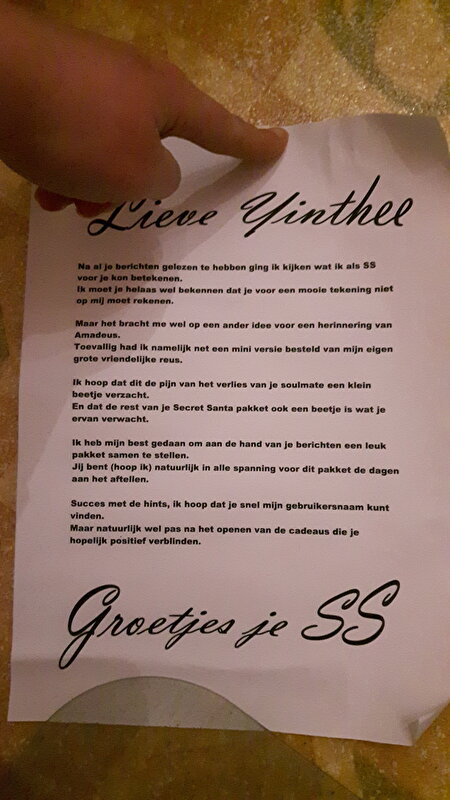 Lieve Yinthee
Na al je berichten gelezen te hebben ging ik kijken wat ik als SS
voor je kon betekenen.
Ik moet je helaas wel bekennen dat je voor een mooie tekening niet
op mij moet rekenen.
Maar het bracht me wel op een ander idee voor een herinnering van
Amadeus.
Toevallig had ik namelijk net een mini versie besteld van mijn eigen
grote vriendelijke reus.
Ik hoop dat dit de pijn van het verlies van je soulmate een klein
beetje verzacht.
En dat de rest van je Secret Santa pakket ook een beetje is wat je
ervan verwacht.
Ik heb mijn best gedaan om aan de hand van je berichten een leuk
pakket samen te stellen.
Jij bent (hoop ik) natuurlijk in alle spanning voor dit pakket de dagen
aan het aftellen.
Succes met de hints, ik hoop dat je snel mijn gebruikersnaam kunt
vinden.
Maar natuurlijk wel pas na het openen van de cadeaus die je
hopelijk positief verblinden.
Groetjes je SS